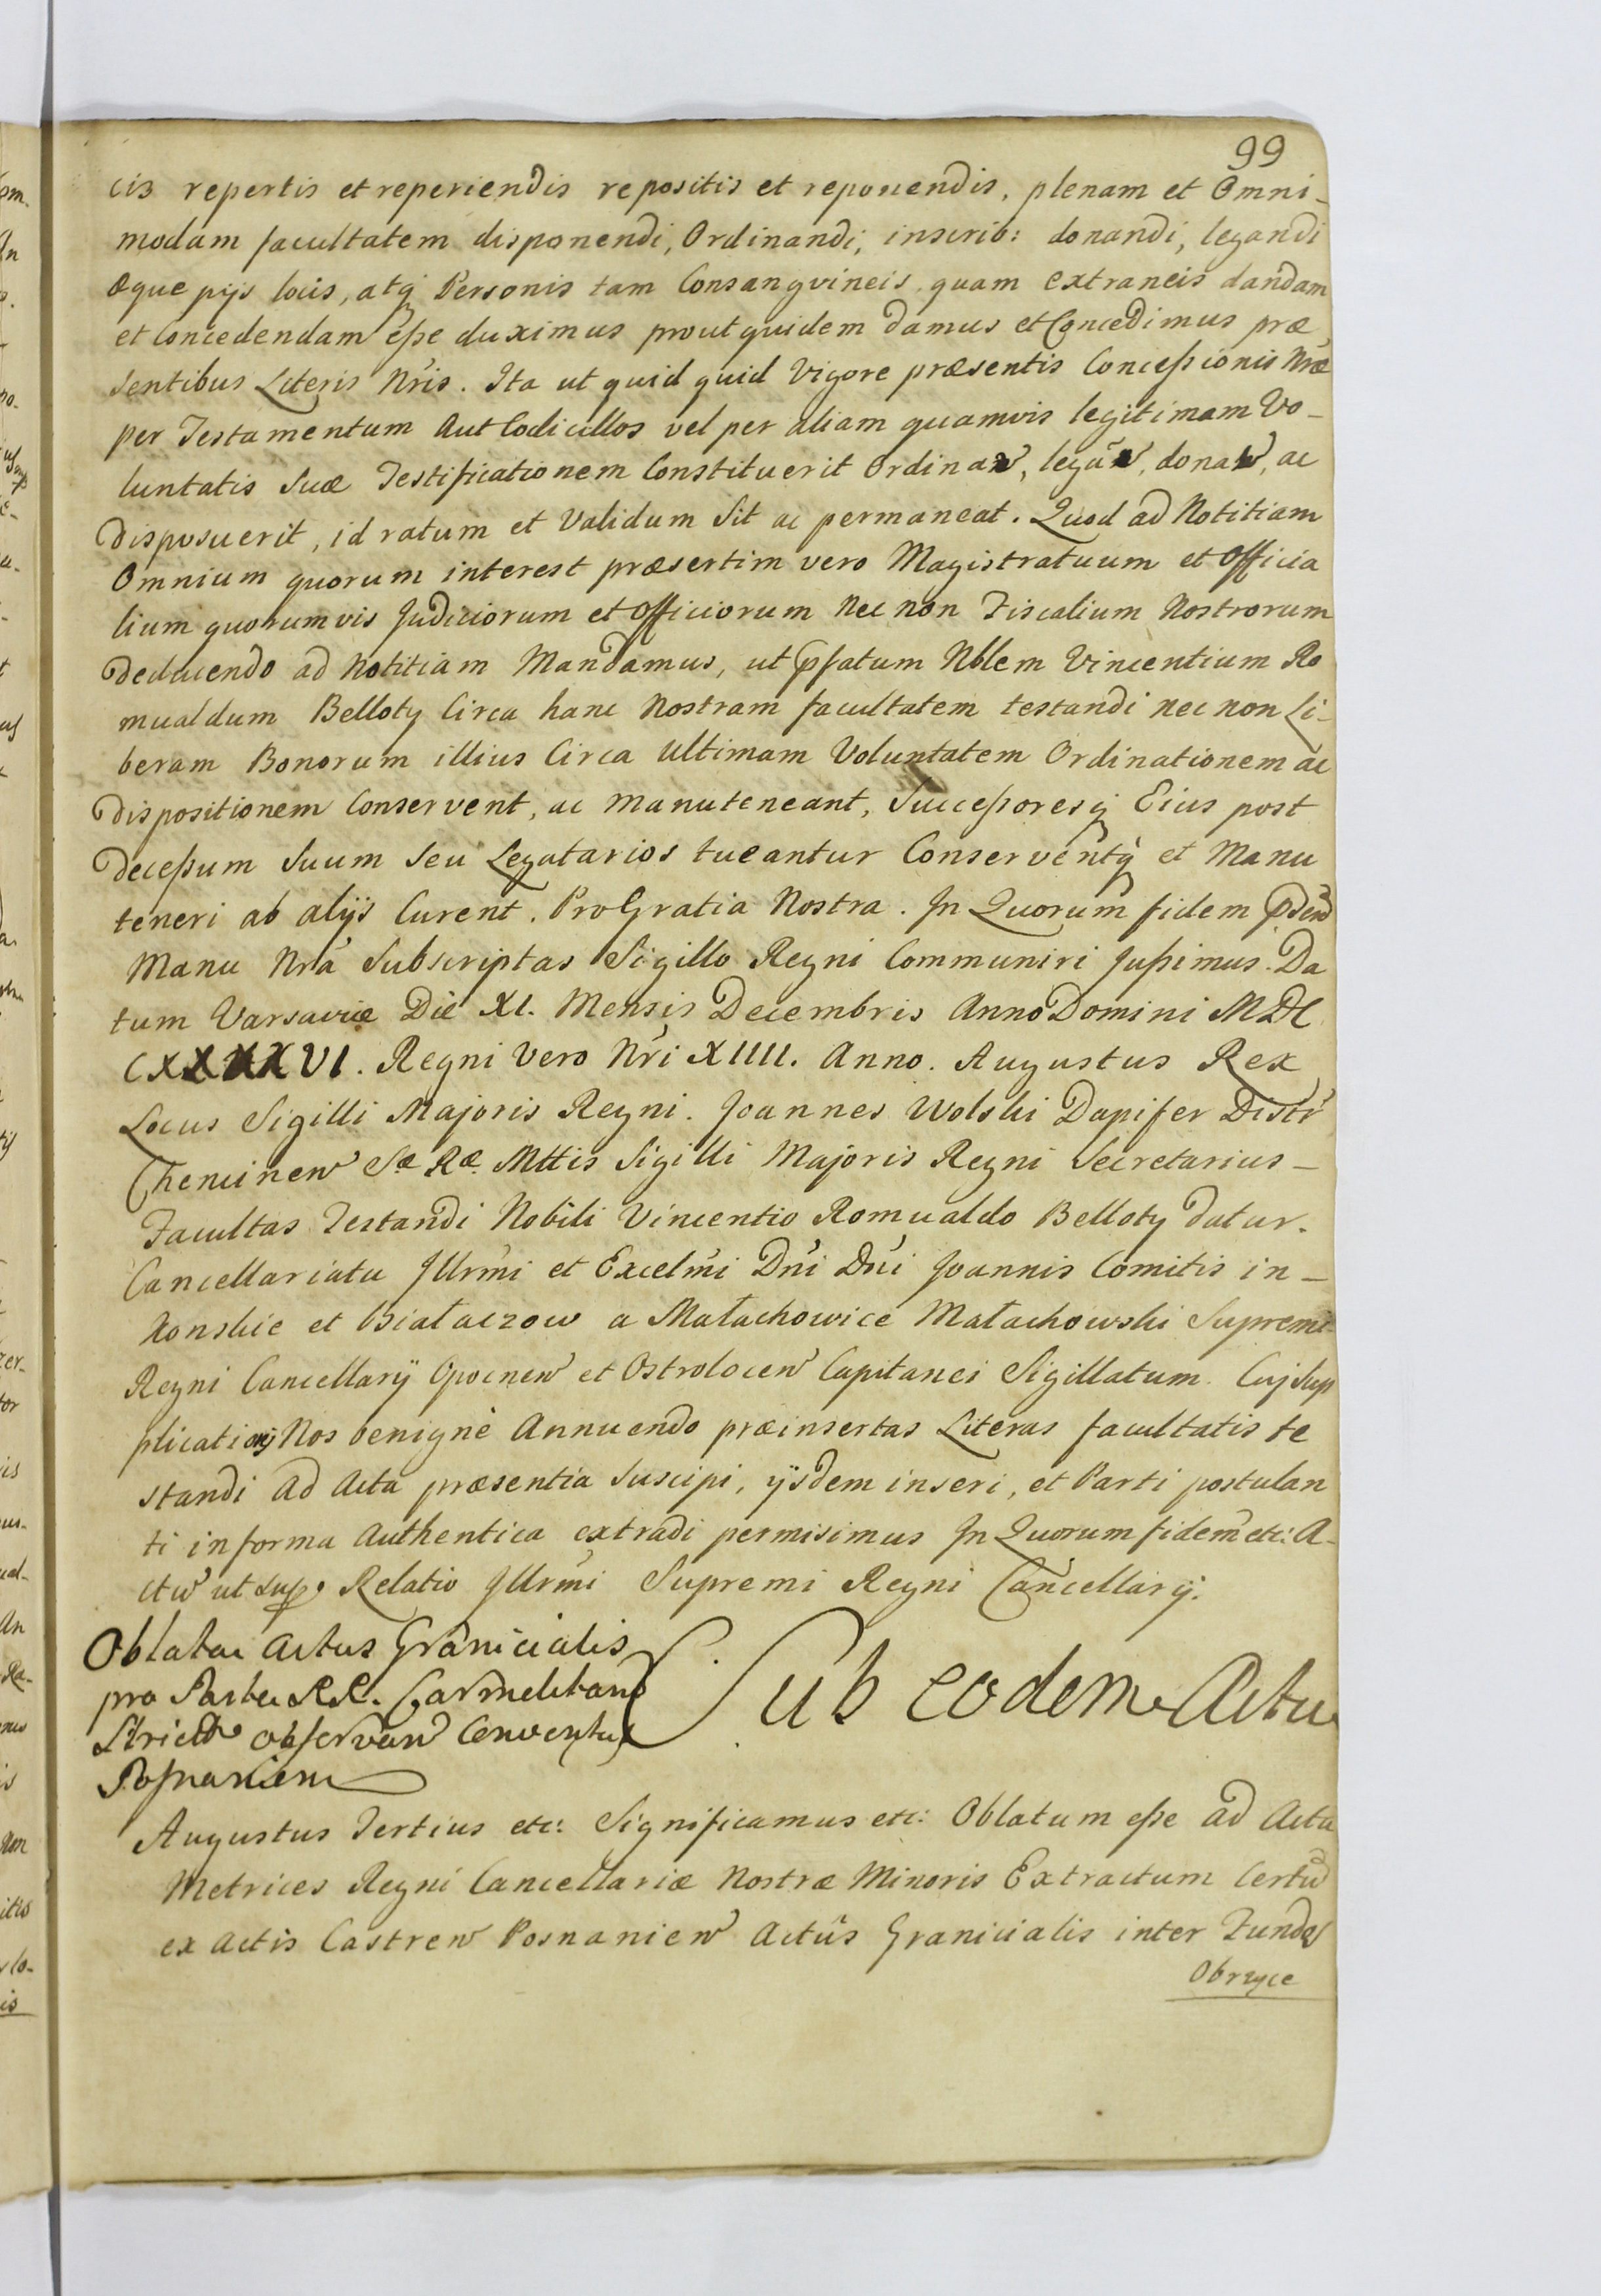 99
cis repertis et reperiendis repositis et reponendis, plenam et Omni-
modam facultatem disponendi, Ordinandi, inscrib: donandi, legandi
æque pijs locis, atq Personis tam Consangvineis quam extraneis dandam
et Concedendam eße duximus prout quidem damus et Concedimus præ
sentibus Literis Nris. Ita ut quid quid Vigore præsentis Conceßionis Nræ
per Testamentum Aut Codicillos vel per aliam quamvis legitimam Vo-
luntatis Suæ Testificationem Constituerit Ordinaw, legaw, donaw, ac
disposuerit, id ratum et Validum Sit ac permaneat. Quod ad Notitiam
Omnium quorum interest præsertim vero Magistratuum et Officia
lium quorumvis Judiciorum et Officiorum Nec non Fiscalium Nostrorum
deducendo ad Notitiam Mandamus, ut pfatum Nblem Vincentium Ro
mualdum Belloty Circa hanc Nostram facultatem testandi nec non Li-
beram Bonorum illius Circa Ultimam Voluntatem Ordinationem ac
dispositionem Conservent, ac Manuteneant, Succeßoresq Eius post
deceßum Suum Seu Legatarios tueantur Conserventq et Manu
teneri ab alijs Curent. Pro Gratia Nostra. In Quorum fidem
Manu Nrã Subscriptas Sigillo Regni Communiri Jußimus. Da
tum Varsaviæ Die XI. Mensis Decembris Anno Domini MDC
CXXXXVI. Regni Vero Nri XIIII. Anno. Augustus Rex
Locus Sigilli Majoris Regni. Joannes Wolski Dapifer Distr
Chencinew Sæ Ræ Mttis Sigilli Majoris Regni Secretarius-
Facultas Testandi Nobili Vincentio Romualdo Belloty datur.
Cancellariatu Jllrmi et Excelmi Dni Dni Joannis Comitis in-
Konskie et Białaczow a Małachowice Małachowski Supremi
Regni Cancellarij Opocnew et Ostrolocew Capitanei Sigillatum. Cuj Sup
plicationj Nos benignè Annuendo præinsertas Literas facultatis te
standi Ad Acta præsentia Suscipi, ijsdem inseri, et Parti postulan
ti in forma Authentica extradi permisimus In Quorum fidem etc: A-
ctw ut sup. Relatio Jllrmi Supremi Regni Cancellarij.
Oblata Actus Granicialis
pro Parte RR. Carmelitarũ
Strictæ observanw Conventus
Posnaniem
Sub eodem Actu
Augustus Tertius etc: Significamus etc: Oblatum eße ad Acta
Metrices Regni Cancellariæ Nostræ Minoris Extractum Certũ
ex Actis Castrew Posnaniew Actûs Granicialis inter Fundos
Obrzyce